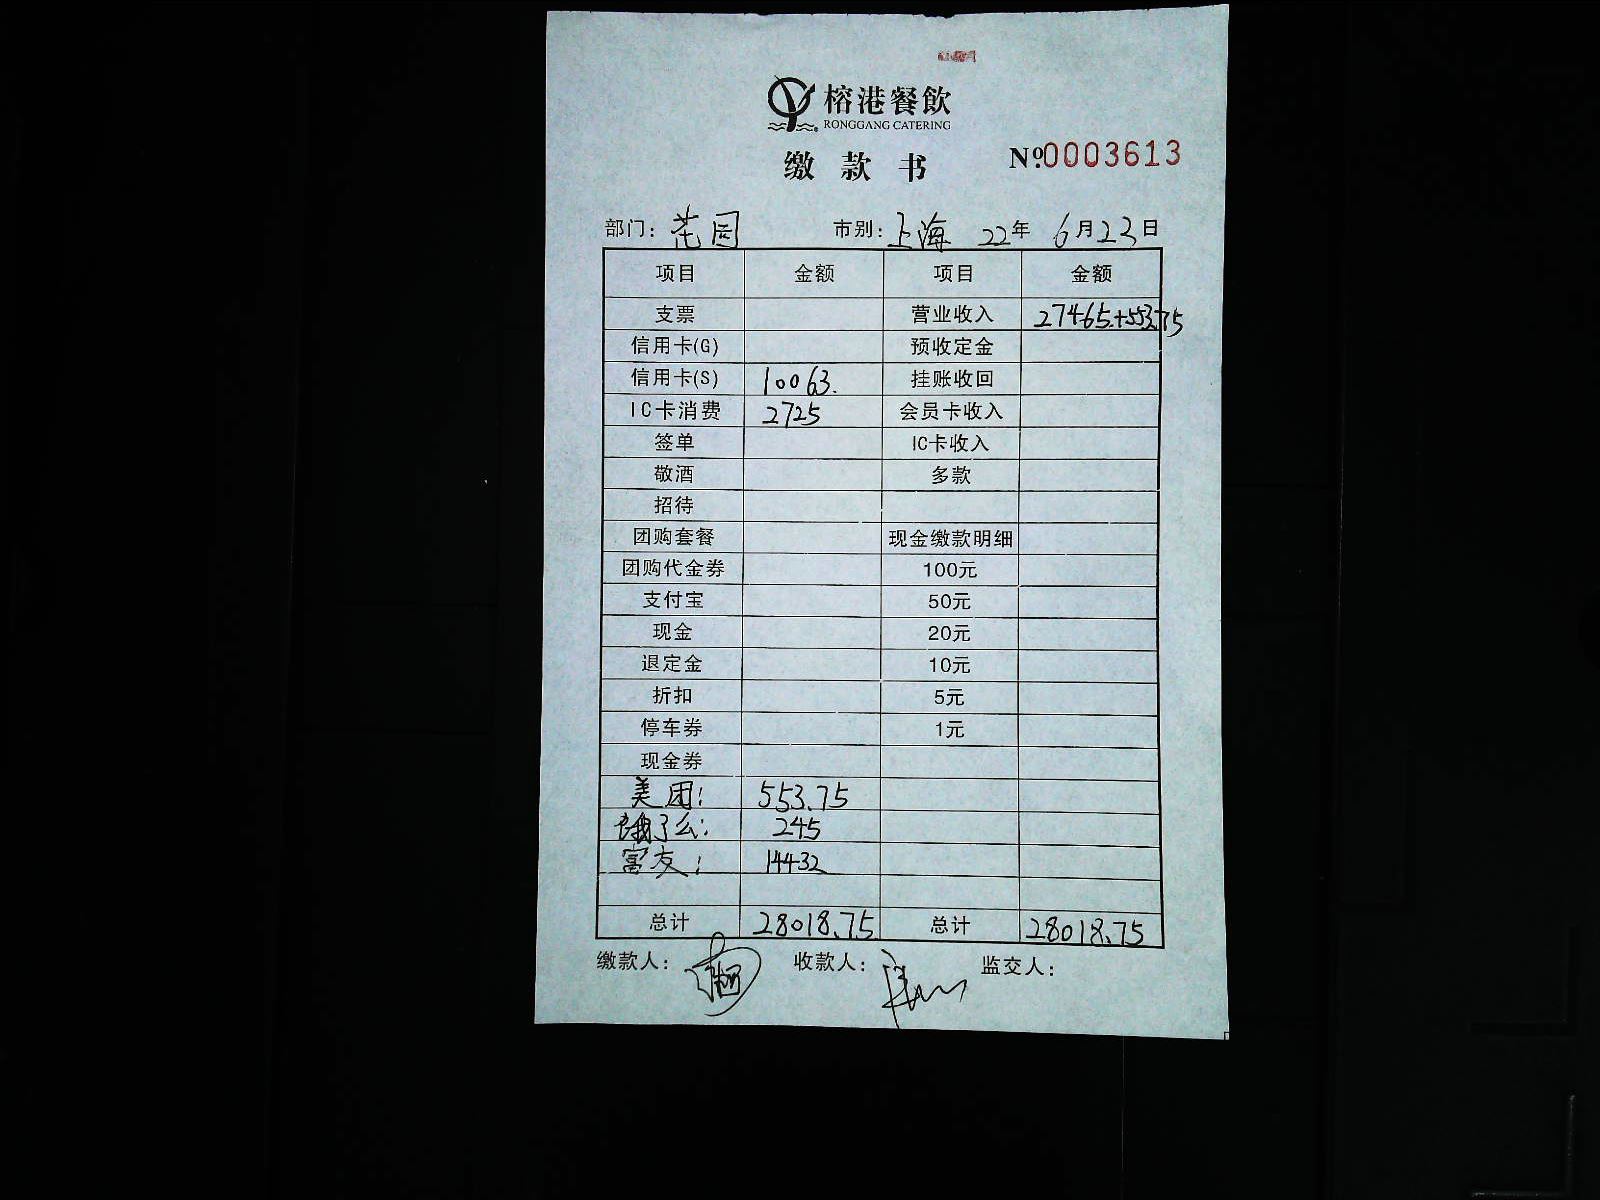 榕港餐飲
RONGGANG CATERING
缴款书
№0003613
部门：花园 市别：上海 22年 6月23日
项目 金额 项目 金额
支票 营业收入 27465.+553.75
信用卡(G) 预收定金
信用卡(S) 10063. 挂账收回
IC卡消费 2725 会员卡收入
签单 IC卡收入
敬酒 多款
招待
团购套餐 现金缴款明细
团购代金券 100元
支付宝 50元
现金 20元
退定金 10元
折扣 5元
停车券 1元
现金券
美团： 553.75
饿了么： 245
富友： 14432
总计 28018.75 总计 28018.75
缴款人： 收款人： 监交人：